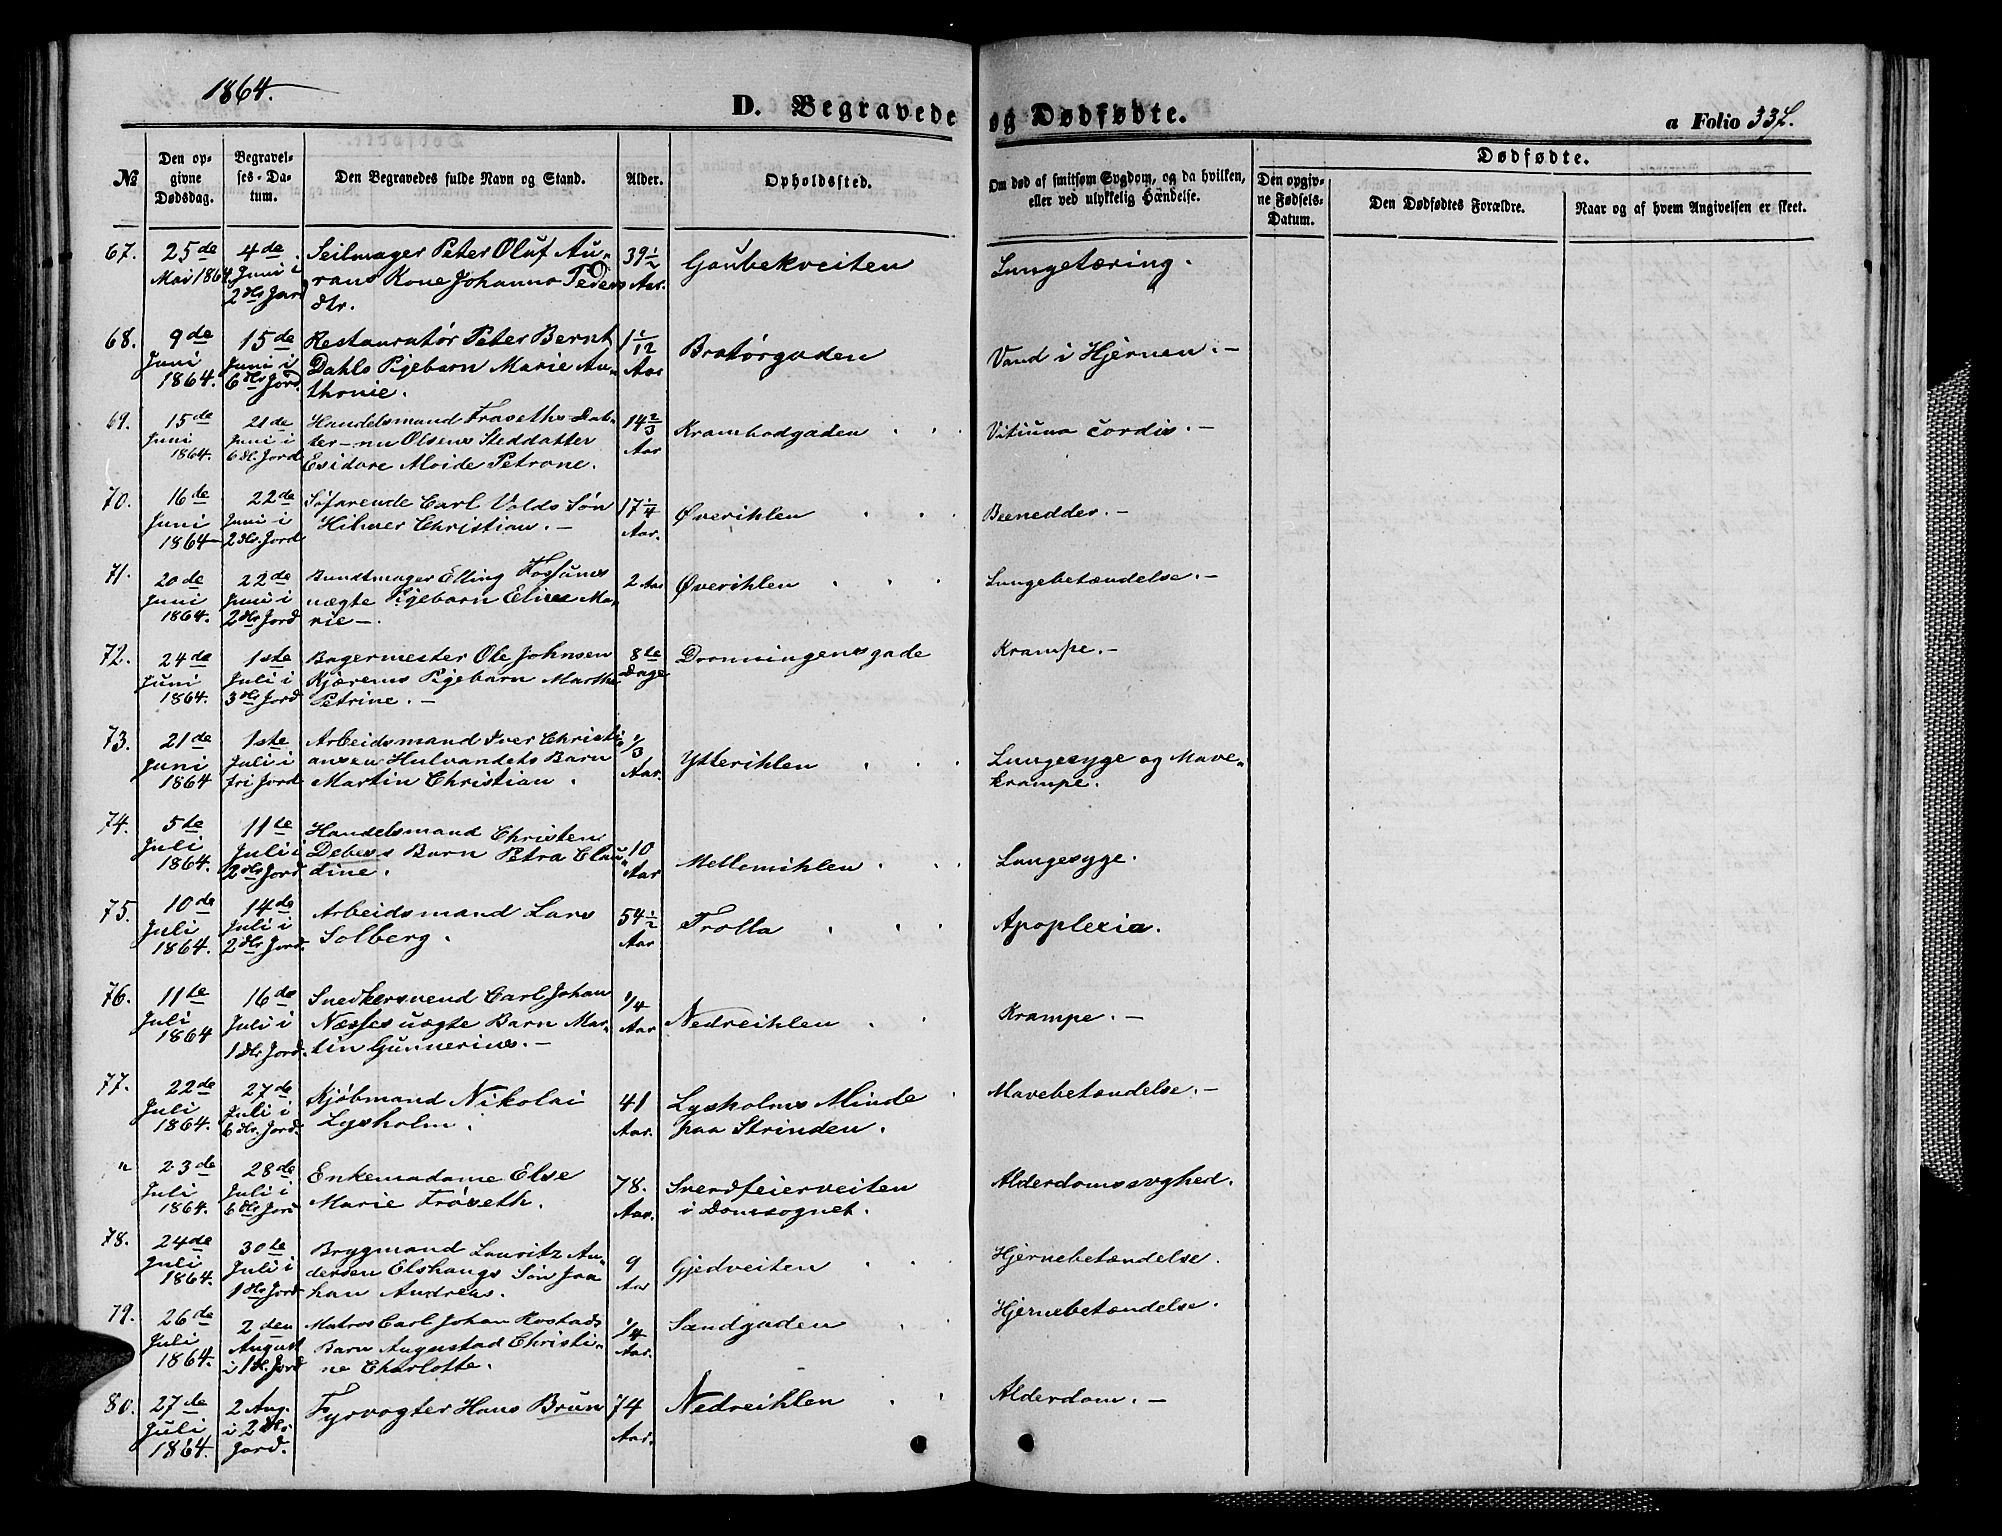 1864.
D. Begravede og Dødfødte.
a Folio 332.
№
Den opgivne Dødsdag.
Begravelses-Datum.
Den Begravedes fulde Navn og Stand.
Alder.
Opholdssted.
Om død af smitsom Sygdom, og da hvilken, eller ved ulykkelig Hændelse.
Dødfødte.
Den opgivne Fødsels-Datum.
Den Dødfødtes Forældre.
Naar og af hvem Angivelsen er skeet.
67. 25de Mai 1864. 4de Juni i 2 Hs Jord
Seilmager Peter Oluf Au-
rans Kone Johanna Peders
dtr.
39 1/2 Aar.
Gaubekveiten
Lungetæring.
68. 9de Juni 1864. 15de Juni i 6 Hs Jord.
Restauratør Peter Bernt
Dahls Pigebarn Marie An-
thonie.
1 1/12 Aar
Bratørgaden
Vand i Hjernen. -
69. 15de Juni 1864. 21de Juni i 6 H. Jord
Handelsmand Fraseths Dat-
ter - nu Olsens Steddatter
Esidore Aloide Petrone.
14 2/3 Aar
Krambodgaden
Vitiuna cordis. -
70. 16de Juni 1864 22de Juni i 2 Hs. Jord
Søfarende Carl Volds Søn
Hilmer Christian. -
17 1/4 Aar.
Øverihlen
Beenedder. -
71. 20de Juni 1864. 22de Juni i 2 Hs Jord
Bundtmager Elling Fossums
uægte Pigebarn Elise Ma-
rie -.
2 Aar
Øverihlen
Lungebetændelse. -
72. 24de Juni 1864. 1ste Juli i 3 Hs Jord
Bagermester Ole Johnsen
Kjærems Pigebarn Marthe
Petrine. -
8te Dage
Dronningensgade
Krampe. -
73. 21de Juni 1864 1ste Juli i fri Jord
Arbeidsmand Iver Christi-
ansen Hulvandets Barn
Martin Christian.
1/3 Aar.
Ytterihlen
Lungesyge og Mave-
krampe.
74. 5te Juli 1864. 11te Juli i 2 Hs Jord
Handelsmand Christen
Debess Barn Petra Clau-
dine.
10 Aar
Mellemihlen
Lungesyge.
75. 10de Juli 1864. 14de Juli i 2 Hs Jord.
Arbeidsmand Lars
Solberg.
54 1/2 Aar
Trolla
Apoplexia.
76. 11te Juli 1864 16de Juli i 1 Hs Jord.
Snedkersvend Carl Johan
Næsses uægte Barn Mar-
tin Gunnerius. -
1/4 Aar
Nedreihlen
Krampe. -
77. 22de Juli 1864. 27de Juli i 6 Hs. Jord.
Kjøbmand Nikolai
Lysholm.
41 Aar.
Lysholms Minde
paa Strinden.
Mavebetændelse. -
" 23de Juli 1864. 28de Juli i 6 Hs Jord
Enkemadame Else
Marie Frøseth.
78. Aar.
Sverdfeierveiten
i Domsognet.
Alderdomssvghed.
78. 24de Juli 1864. 30te Juli i 1 Hs Jord
Brygmand Lauritz An-
dersen Elshaugs Søn Joa
han Andreas.
9 Aar
Gjedveiten
Hjernebetændelse.
79. 26de Juli 1864. 2den August i 1 H. Jord
Matros Carl Johan Rostads
Barn Augustad Christi-
ne Charlotte.
1/4 Aar.
Sandgaden
Hjernebetændelse.
80. 27de Juli 1864. 2 Aug. i 2 Hs. Jord.
Fyrvogter Hans Brun
74 Aar.
Nedreihlen
Alderdom. -